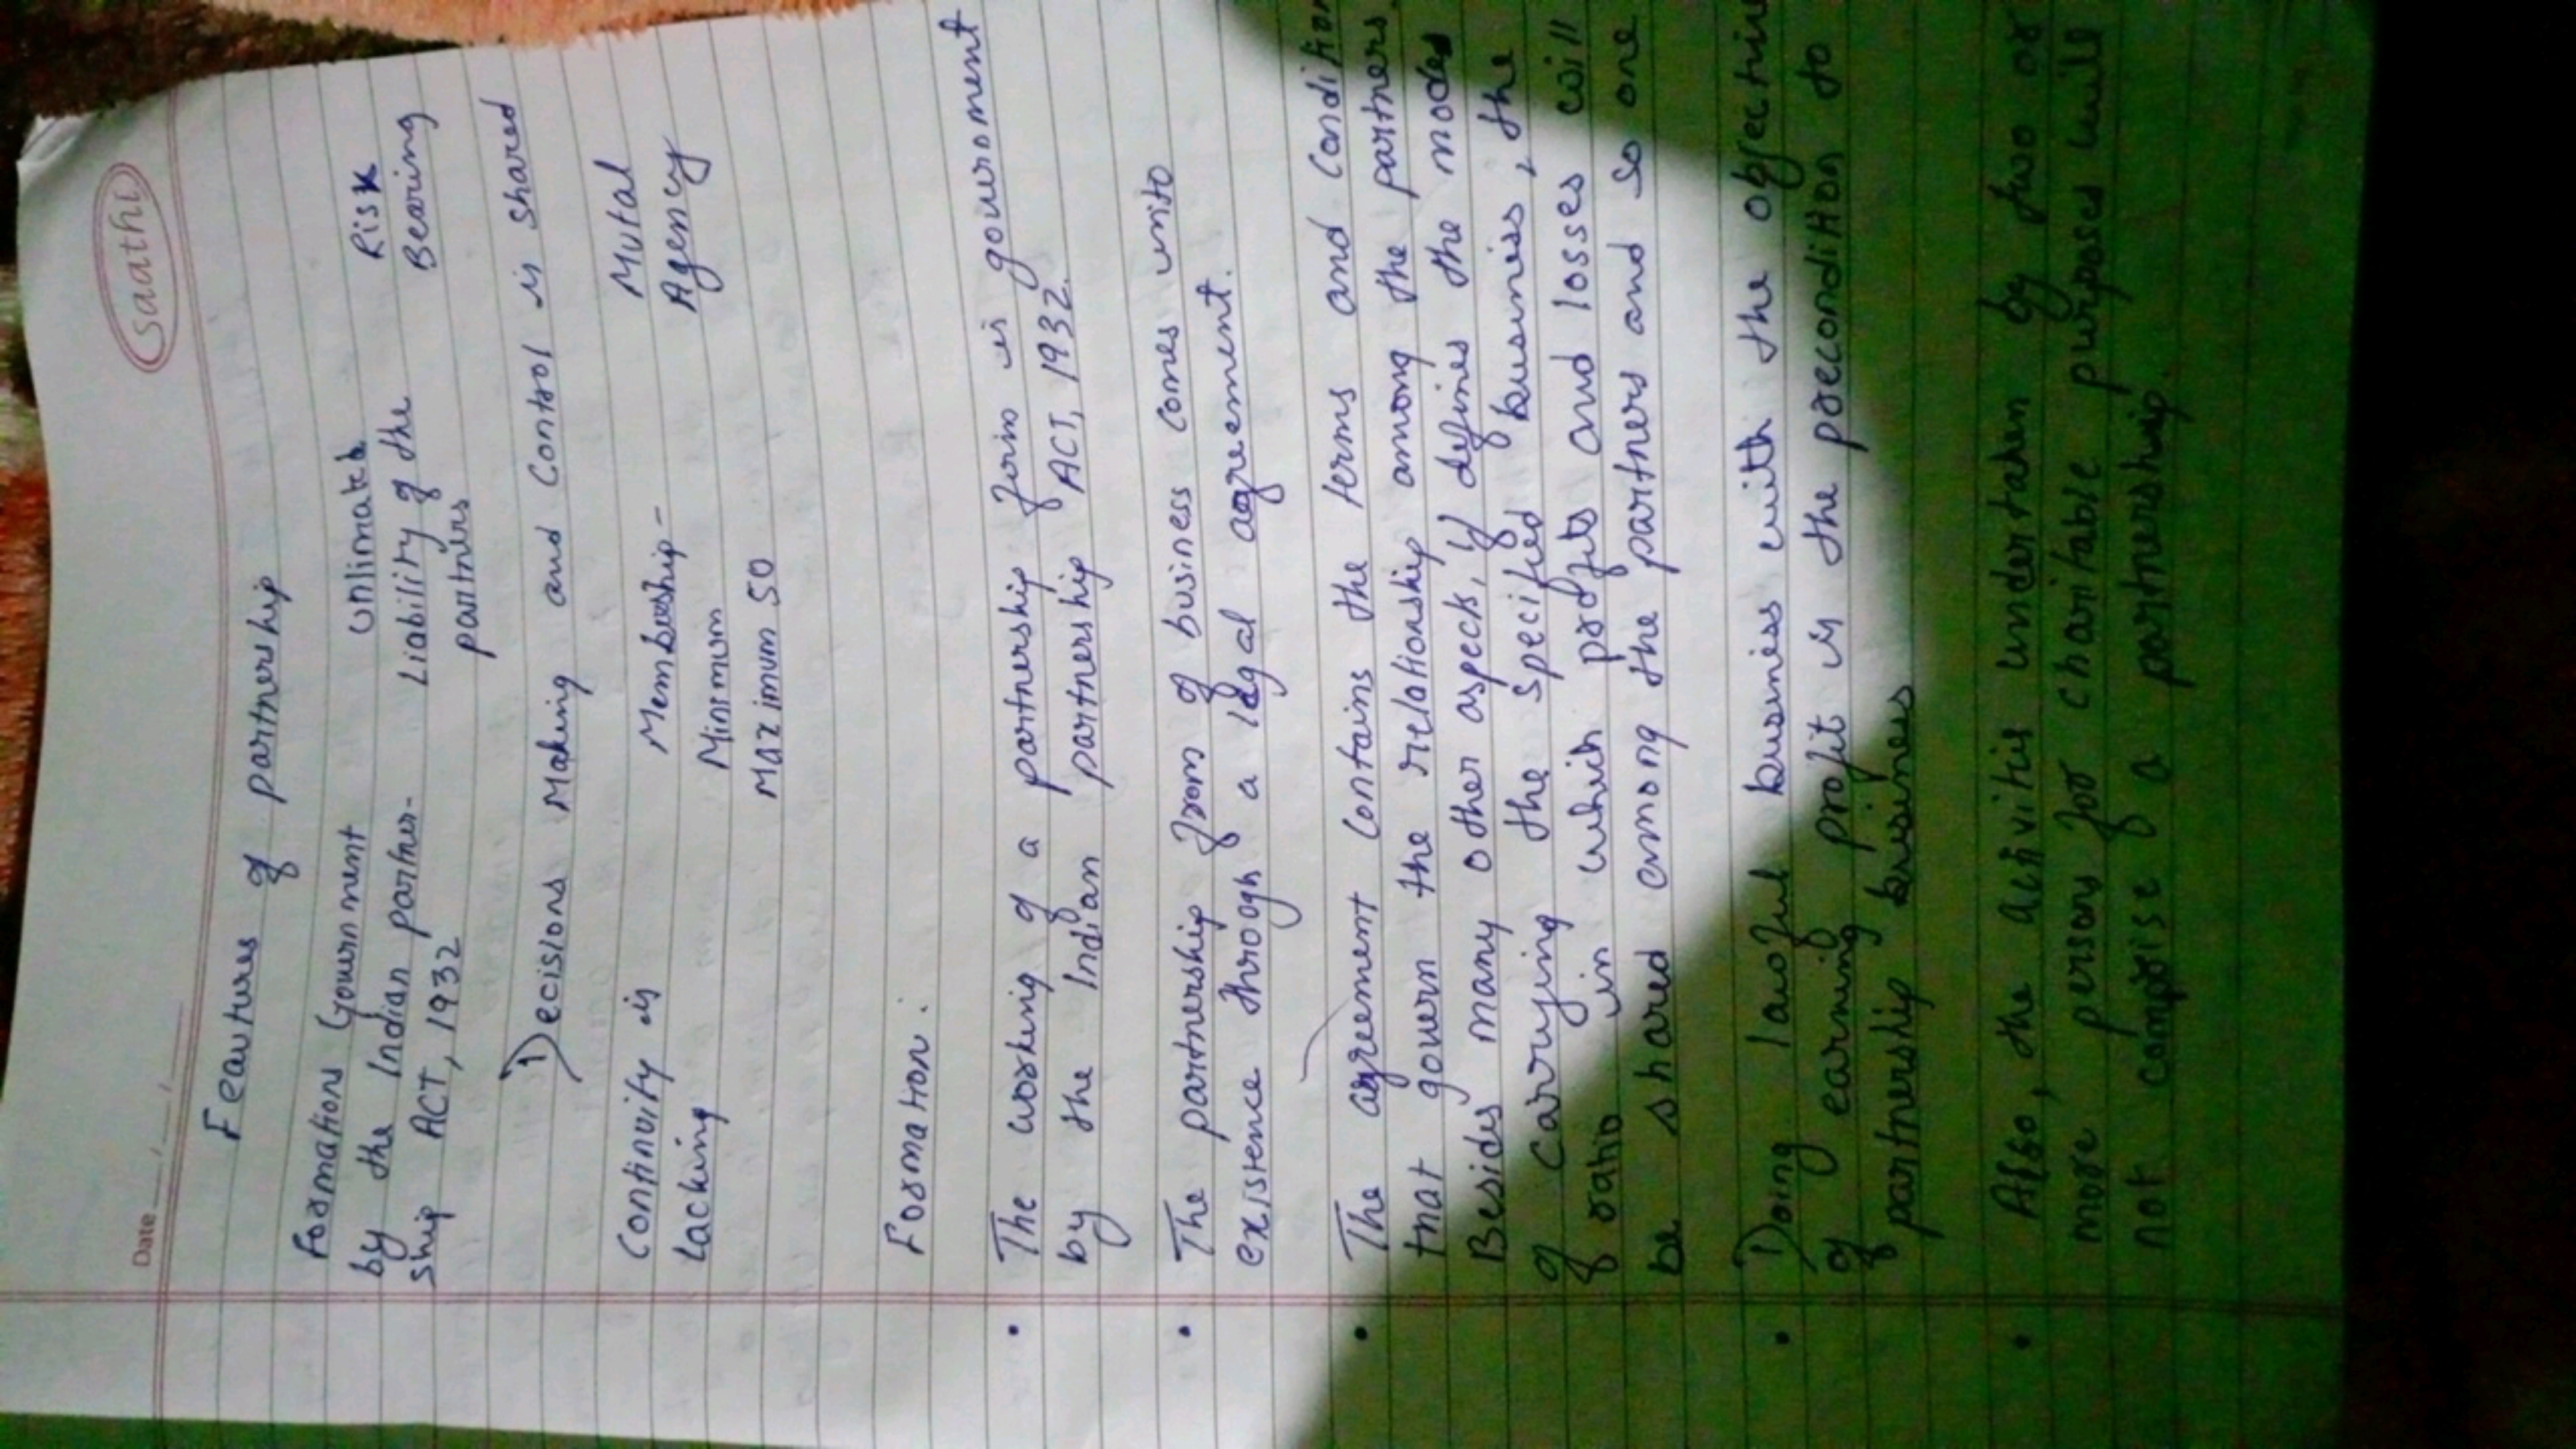 Date
Saathi
Features of partnership
Formations Government
by the Indian partner-
ship ACT, 1932
Unlimateb
Liability of the
partners
Risk
Bearing
Decisions Making and Control is shared
Continuity is
Lacking
Membership -
Minimum
Maximum 50
Mutal
Agency
Formation.
• The working of a partnership firm is government
by the Indian partnership ACT, 1932.
• The partnership from of business comes into
existence through a legal agreement.
• The agreement contains the terms and condition
that govern the relationship among the partners.
Besides many other aspects, it defines the modes
of carrying the specified business, the
ratio in which profits and losses will
be shared among the partners and so one
• Doing lawful business with the objective
of earning profit is the precondition to
partnership business
• Also, the activities undertaken by two or
more persons for charitable purposes will
not comprise a partnership.